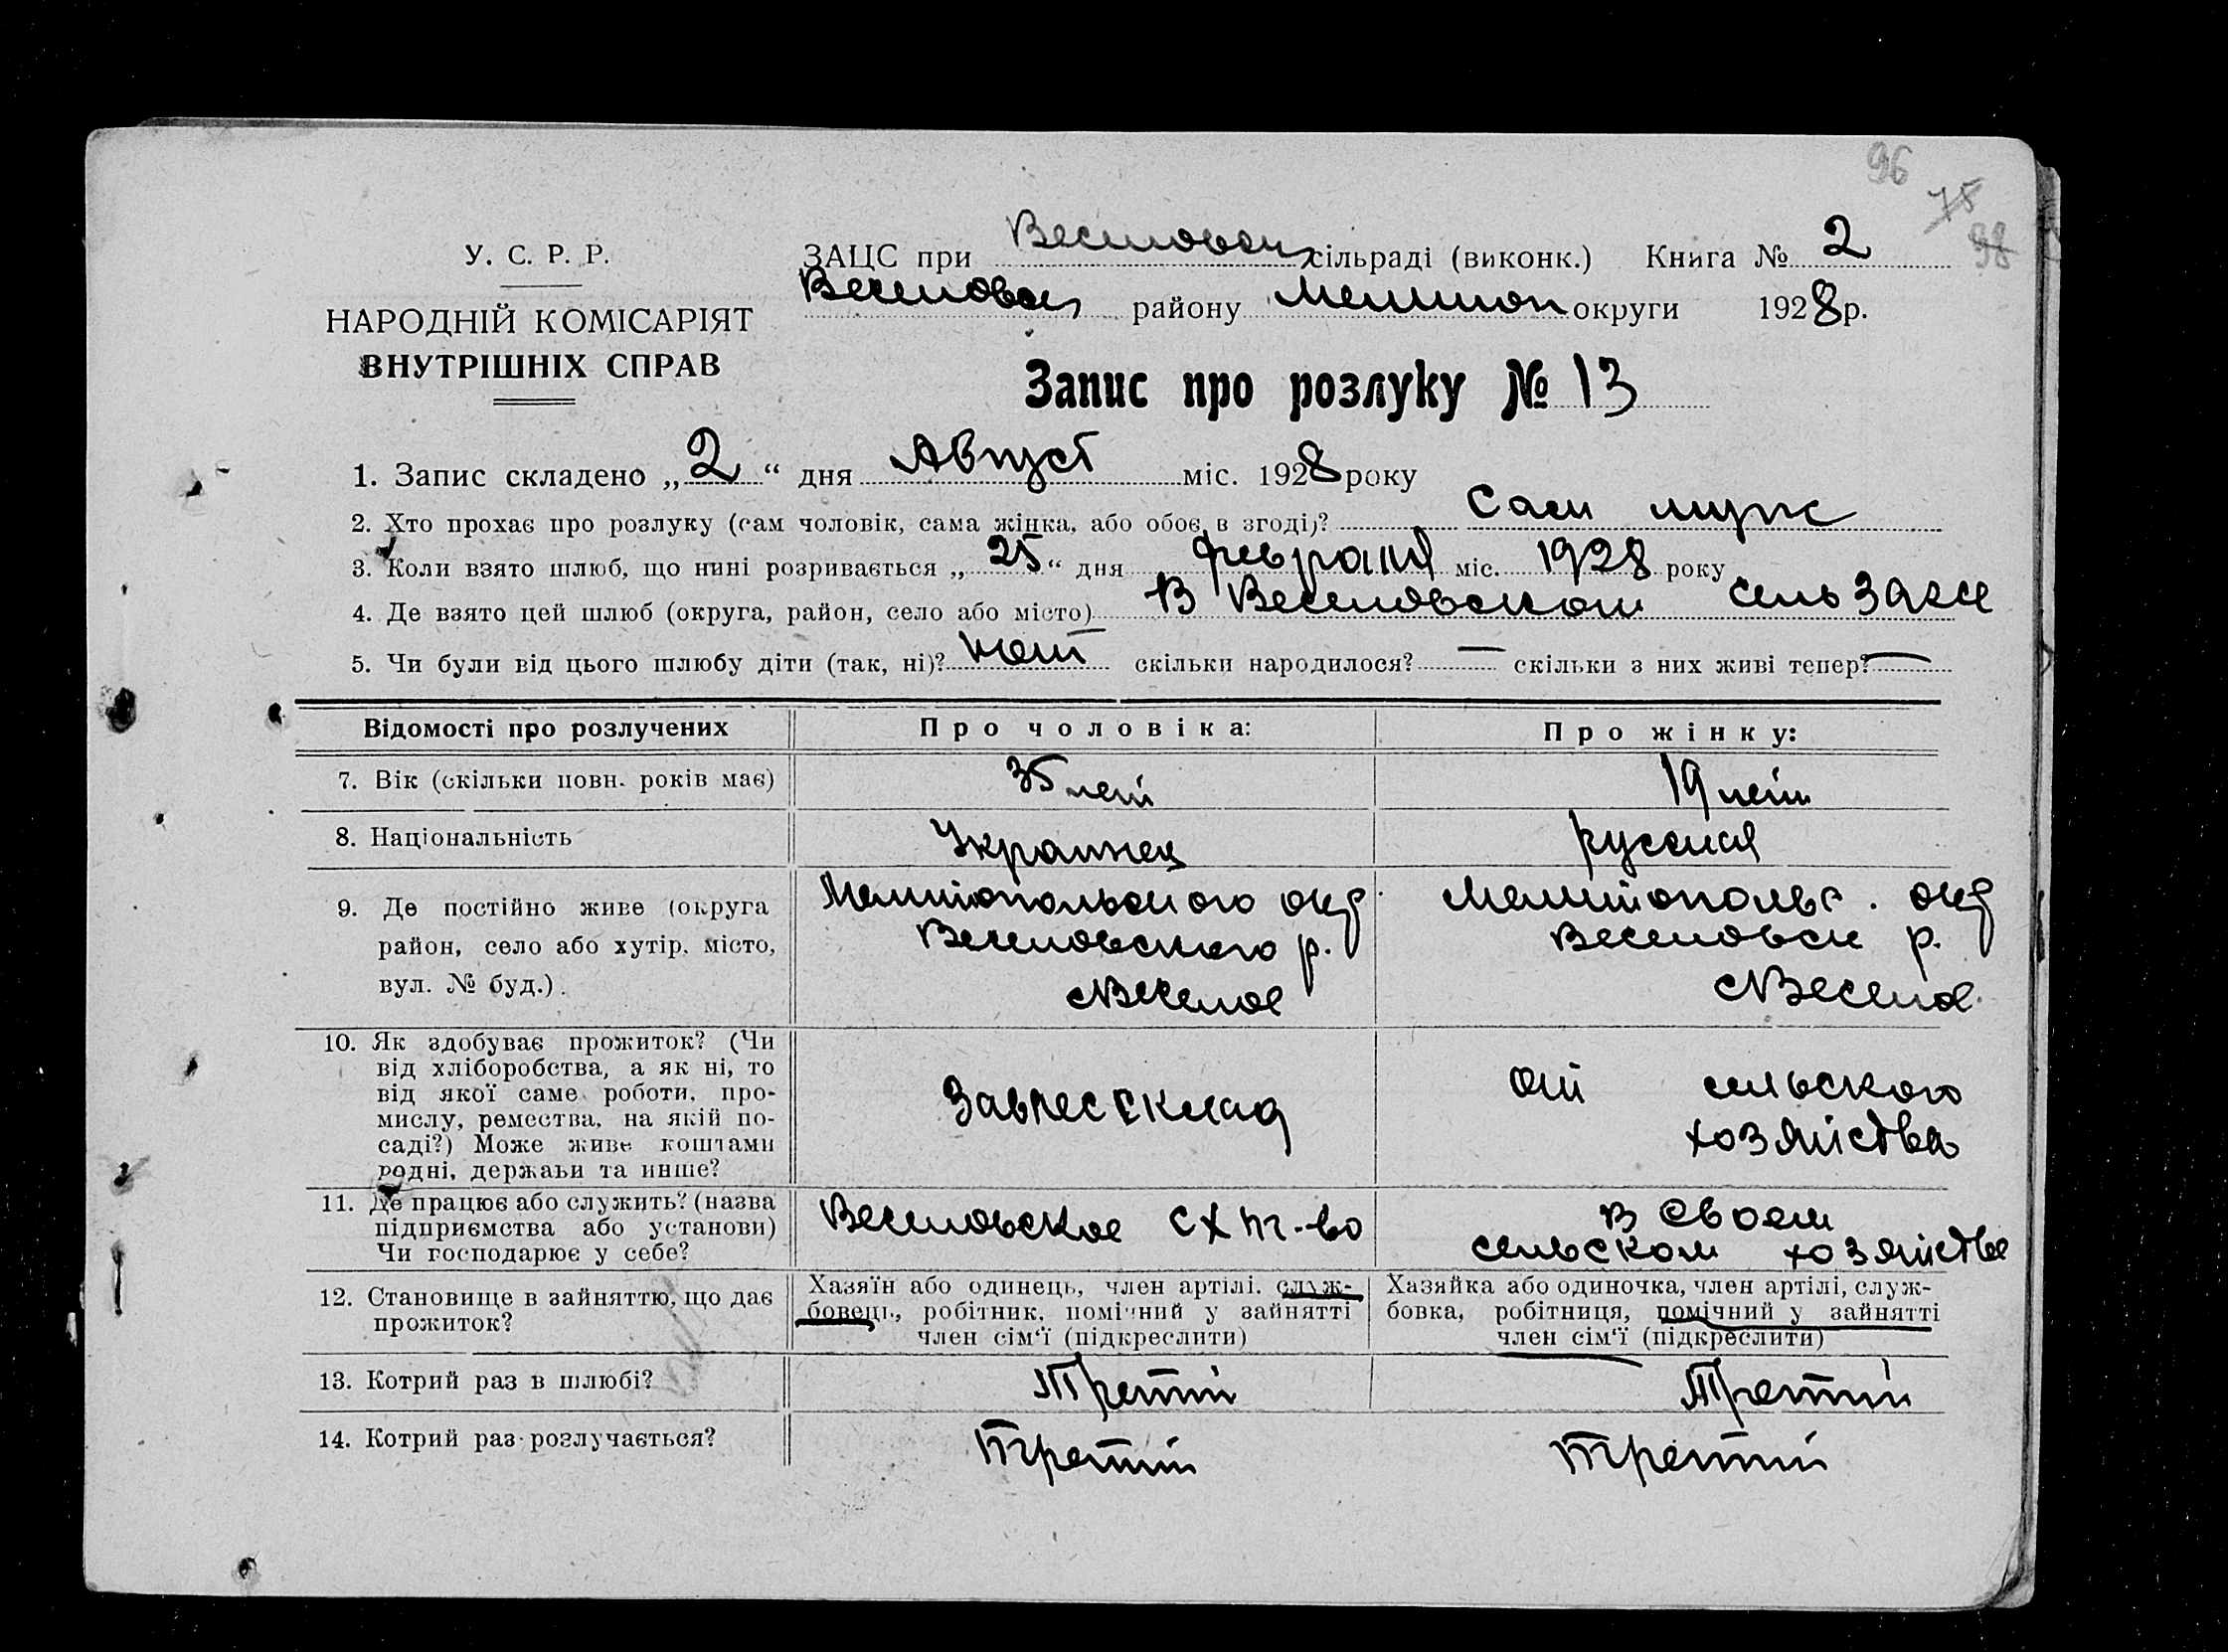 96
75
98
У. С. Р. Р.
НАРОДНІЙ КОМІСАРІЯТ
ВНУТРІШНІХ СПРАВ
ЗАЦС при Веселовск сільраді (виконк.) Книга № 2
Веселовск району Мелитоп округи 1928 р.
Запис про розлуку № 13
1. Запис складено „2“ дня Август міс. 1928 року
2. Хто прохає про розлуку (сам чоловік, сама жінка, або обоє в згоді)? Сам муж
3. Коли взято шлюб, що нині розривається „25“ дня февраля міс. 1928 року
4. Де взято цей шлюб (округа, район, село або місто) В Веселовском сельЗагсе
5. Чи були від цього шлюбу діти (так, ні)? нет скільки народилося? — скільки з них живі тепер? —
Відомості про розлучених
Про чоловіка:
Про жінку:
7. Вік (скільки повн. років має)
35 лет
19 лет
8. Національність
Украинец
русская
9. Де постійно живе (округа
район, село або хутір, місто,
вул. № буд.).
Мелитопольского окр
Веселовского р.
с Веселое
Мелитопольс. окр
Веселовск р.
с Веселое
10. Як здобуває прожиток? (Чи
від хліборобства, а як ні, то
від якої саме роботи, про-
мислу, ремества, на якій по-
саді?) Може живе коштами
родні, держави та инше?
от сельского
хозяйства
11. Де працює або служить? (назва
підприємства або установи)
Чи господарює у себе?
Веселовское СХ т-во
в своем
сельском хозяйстве
12. Становище в зайняттю, що дає
прожиток?
Хазяїн або одинець, член артілі, служ-
бовець, робітник, помічний у зайнятті
член сім'ї (підкреслити)
Хазяйка або одиночка, член артілі, служ-
бовка, робітниця, помічний у зайнятті
член сім'ї (підкреслити)
13. Котрий раз в шлюбі?
Третий
Третий
14. Котрий раз розлучається?
третий
третий